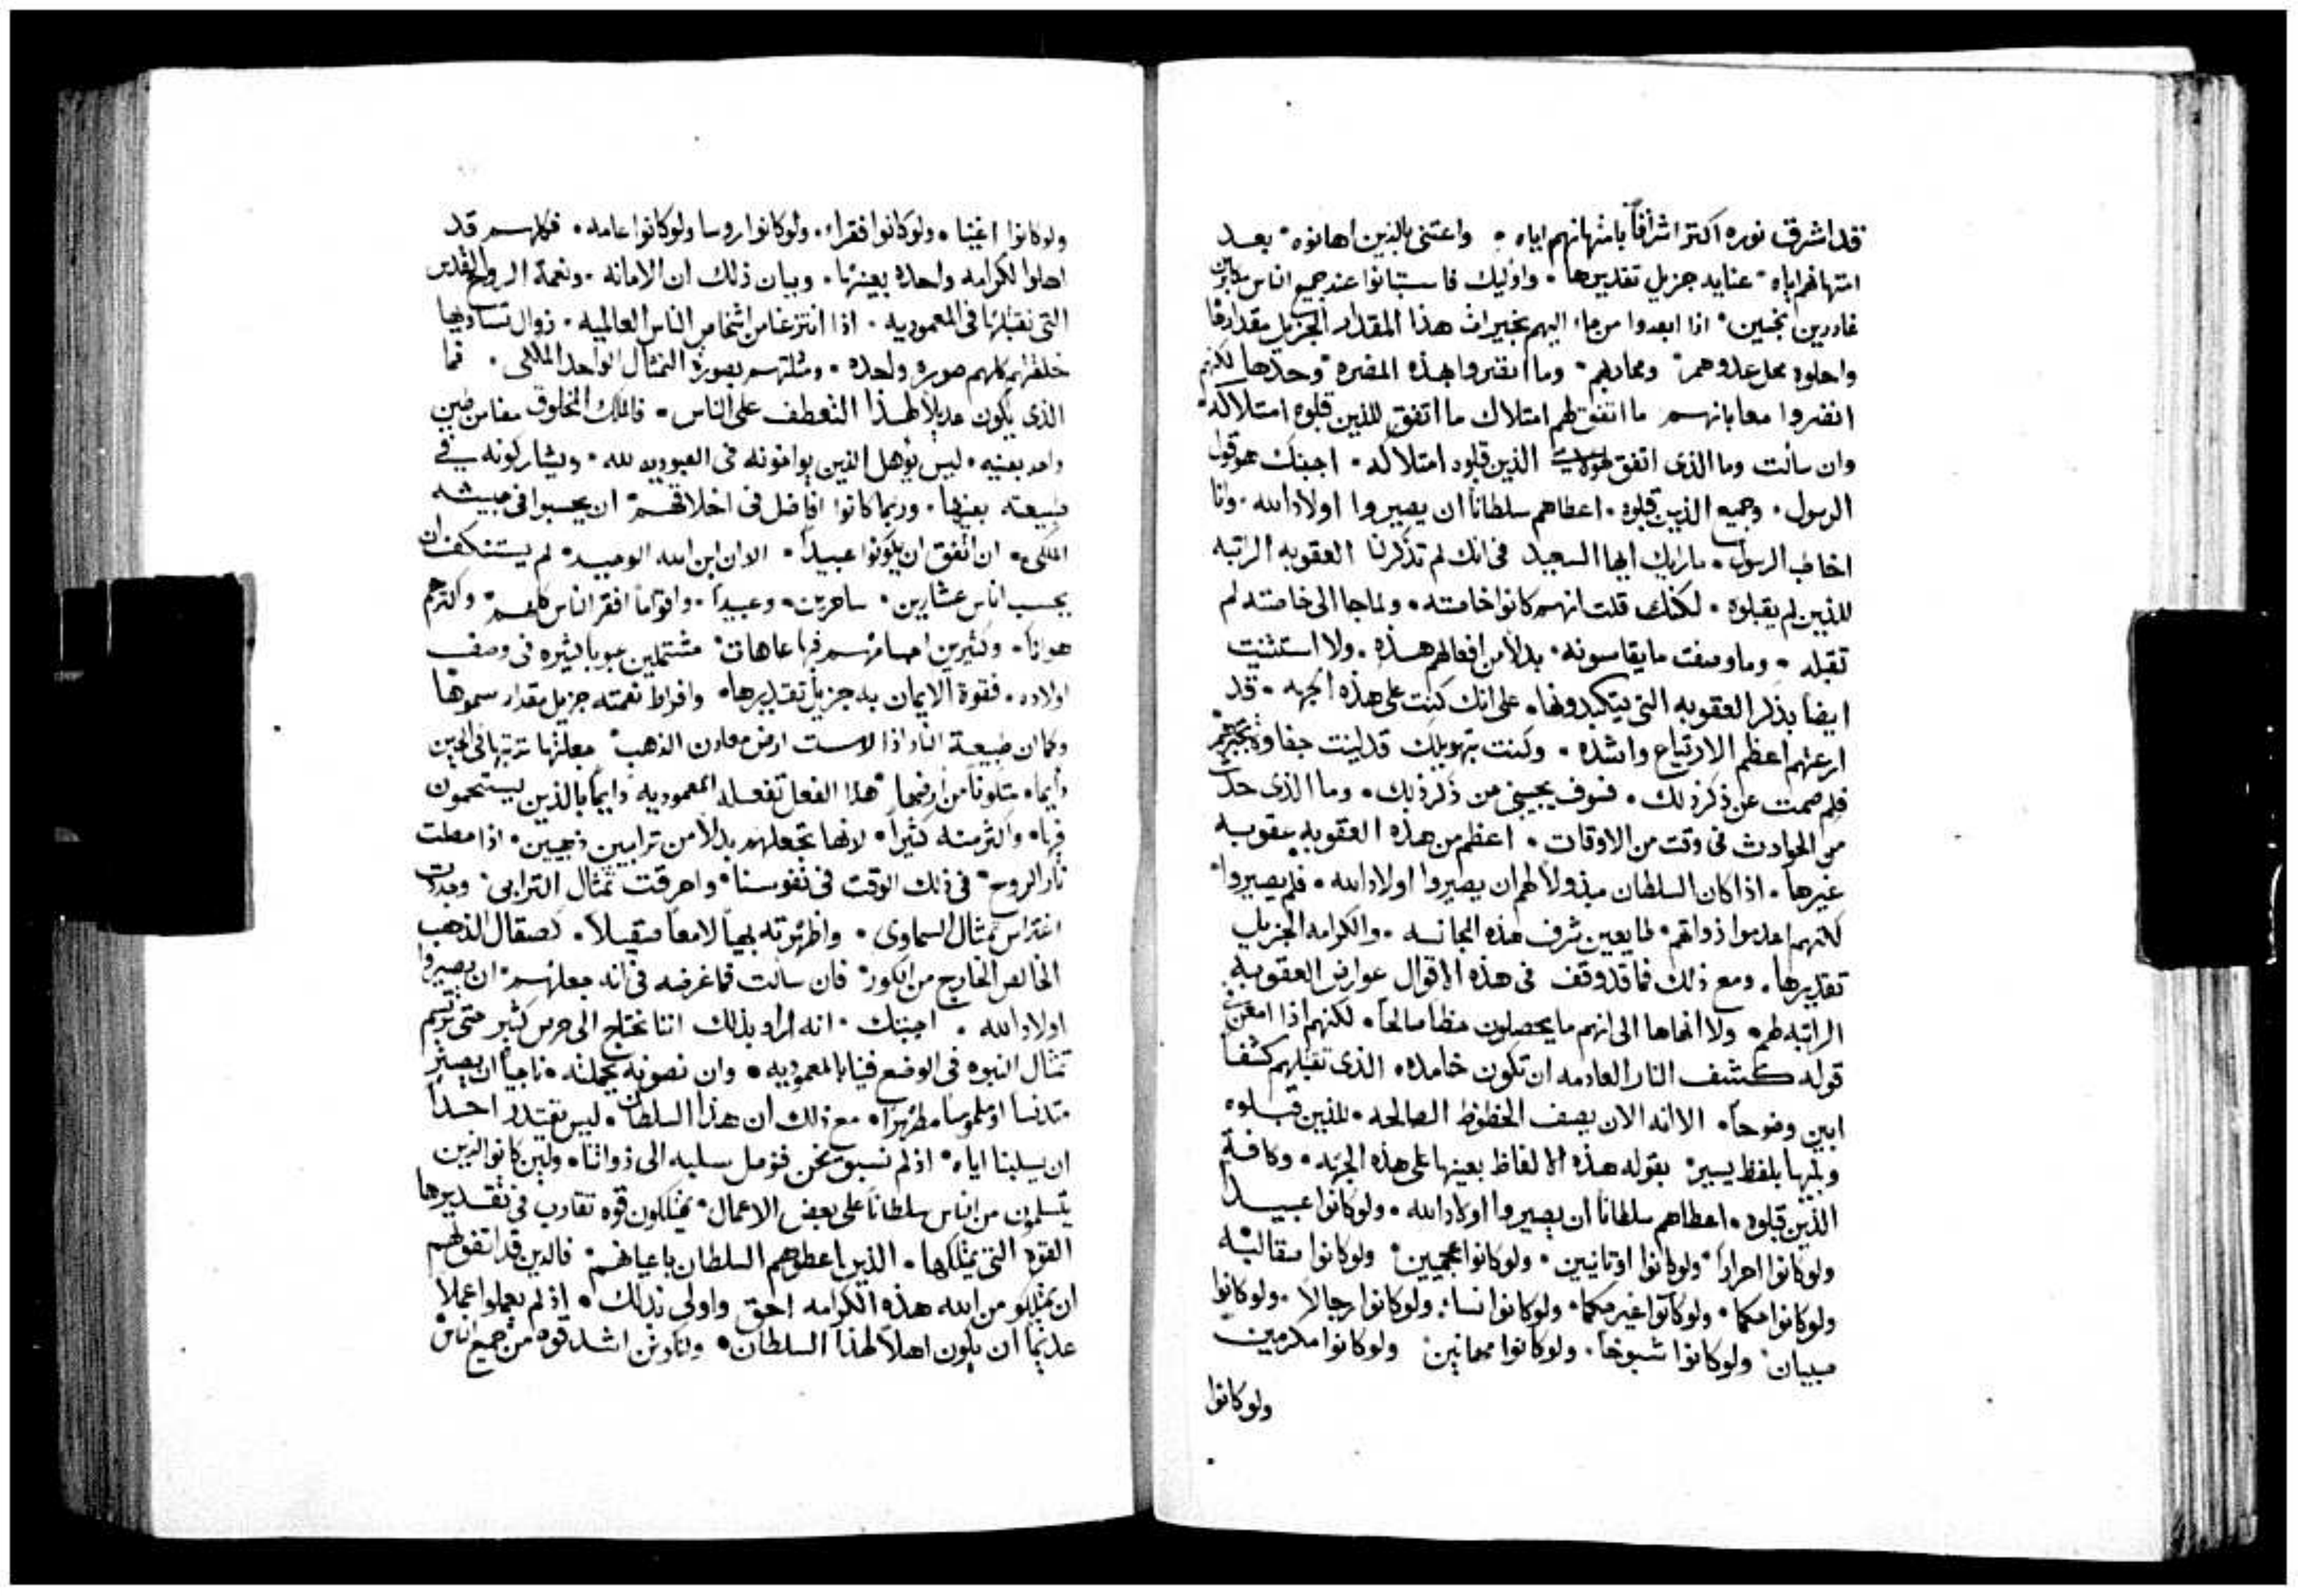 قد اشرق نوره اكثر اشراقاً بامتهانهم اياه • واعتنى بالذين اهانوه • بعد
امتهانهم اياه • عنايه جزيل تقديرها • واوليك فاستبانوا عند جميع الناس
غادرين بخسين • اذا ابعدوا من جاء اليهم بخيرات هذا المقدار الجزيل مقدارها
واحلوه محل عدوهم • ومحاربهم • وما انضروا بهذه المضره وحدها لكنهم
انضروا معا بانهم ما اتفق لهم امتلاك ما اتفق للذين قبلوه امتلاكه •
وان سالت وما الذى اتفق لهولاء الذين قبلوه امتلاكه • اجبتك هو قول
الرسول • وجميع الذين قبلوه • اعطاهم سلطاناً ان يصيروا اولاد الله • وانا
اخاطب الرسول • ما رايك ايها السعيد فى انك لم تذكر لنا العقوبه الراتبه
للذين لم يقبلوه • لكنك قلت انهم كانوا خاصته • ولما جا الى خاصته لم
تقبله • وما وصفت ما يقاسونه • بدلاً من افعالهم هذه • ولا استثنيت
ايضاً بذكر العقوبه التى يتكبدونها • على انك كنت على هذه الجهه • قد
ارعتهم اعظم الارتياع واشده • وكنت بتهويلك قد لينت جفاوة تجبرهم
فلم صمت عن ذكر ذلك • فسوف يجيبنى عن ذكر ذلك • وما الذى حدث
من الحوادث فى وقت من الاوقات • اعظم من هذه العقوبه عقوبه
غيرها • اذا كان السلطان مبذولاً لهم ان يصيروا اولاد الله • فلم يصيروا •
لكنهم اعدموا ذواتهم طايعين شرف هذه المجانسه • والكرامه الجزيل
تقديرها • ومع ذلك فما قد وقف فى هذه الاقوال عوارض العقوبه
الراتبه لهم • ولا انهاها الى انهم ما يحصلون حظاً صالحاً • لكنهم اذا
قوله كشف النار العادمه ان تكون خامده • الذى تقبلهم كشفاً
ابين وضوحاً • الا انه الان يصف الحظوظ الصالحه • للذين قبلوه
بلفظ يسير • بقوله هذه الالفاظ بعينها على هذه الجهه • وكافة
الذين قبلوه • اعطاهم سلطاناً ان يصيروا اولاد الله • ولو كانوا عبيداً
ولو كانوا احراراً • ولو كانوا اوثانيين • ولو كانوا عجميين • ولو كانوا صقالبه
ولو كانوا حكما • ولو كانوا غير حكما • ولو كانوا نسا • ولو كانوا رجالاً • ولو كانوا
صبيان • ولو كانوا شيوخاً • ولو كانوا مهانين • ولو كانوا مكرمين
ولو كانوا
ولو كانوا اغنيا • ولو كانوا فقراء • ولو كانوا روسا ولو كانوا عامه • فكلهم قد
اهلوا لكرامه واحده بعينها • وبيان ذلك ان الامانه • ونعمة الروح القدس
التى نقبلها فى المعموديه • اذا انتزعنا من اشخاص الناس العالميه • زوال تساويها
خلقتهم كلهم صوره واحده • ومثلتهم بصورة التمثال الواحد الملكى • فما
الذى يكون عديلاً لهذا التعطف على الناس • فالملك المخلوق معنا من طين
واحد بعينه • ليس يوهل الذين يوافونه فى العبوديه لله • ويشاركونه فى
طبيعته بعينها • وربما كانوا افاضل فى اخلاقهم ان يحسبوا فى جيشه
الملكى • ان اتفق ان يكونوا عبيداً • الا ان ابن الله الوحيد • لم يستنكف ان
يحسب اناس عشارين • ساحرين • وعبيداً • واقواماً افقر الناس كلهم • واكثرهم
هواناً • وكثيرين اجسامهم فيها عاهات • مشتملين عيوباً كثيره فى وصف
اولاده • فقوة الايمان به جزيل تقديرها • وافراط نعمته جزيل مقدار سموها
وكما ان طبيعة النار اذا لامست ارض معادن الذهب • جعلتها تربتها فى الحين
دايماً • متلوناً من ارضها • هذا الفعل تفعله المعموديه دايماً بالذين يستحمون
فيها • واكثر منه كثيراً • لانها تجعلهم بدلاً من ترابيين ذهبيين • اذا حصلت
نار الروح • فى ذلك الوقت فى نفوسنا • واحرقت تمثال الترابى • وجددت
اغتراس تمثال السماوى • واظهرته بهياً لامعاً صقيلاً • كصقال الذهب
الخالص الخارج من الكور • فان سالت فما غرضه فى انه جعلهم • ان يصيروا
اولاد الله • اجبتك • انه اراد بذلك اننا نحتاج الى حرص كثير حتى يرتسم
تمثال البنوه فى الوضع فينا بالمعموديه • وان نصونه بجملته • ناجياً ان يصير
متدنساً او ملموساً • مع ذلك ان هذا السلطان • ليس يقتدر احداً
ان يسلبنا اياه • اذ لم نسبق نحن فنوصل سلبه الى ذواتنا • ولين كانوا الذين
يتسلمون من الناس سلطاناً على بعض الاعمال • يمتلكون قوه تقارب فى تقديرها
القوة التى يمتلكها • الذين اعطوهم السلطان باعيانهم • فالذين قد اتفق لهم
ان يمتلكو من الله هذه الكرامه احق واولى بذلك • اذ لم يعملوا عملاً
عديماً ان يكون اهلاً لهذا السلطان • اشد قوه من جميع الناس